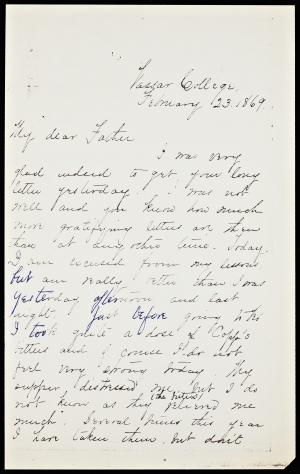 Vassar College,
February 23. 1869.
My dear Father
I was very
glad indeed to get your long
letter yesterday. I was not
well and you know how much
more gratifying letters are then
than at any other time. Today
I am excused from my lessons
but am really better than I was
yesterday afternoon and last
night. Just before going to
I took quite a dose of Copp's
bitters and of course I do not
feel very strong today. My
supper distressed me, but I do
(the bitters)
not know as they relieved me
much. Several times this year
I have taken them, but don't